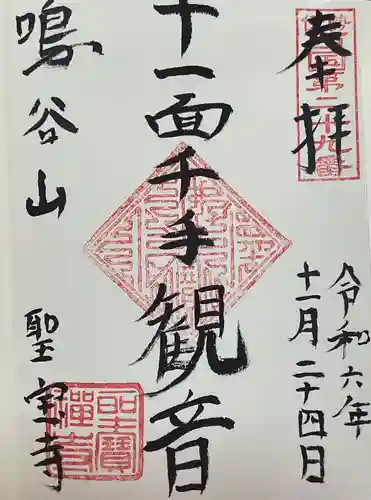 奉拝
令和六年
十一月二十四日
十一面千手観音
鳴谷山
聖宝寺